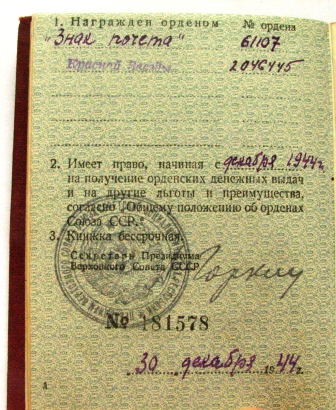 1. Награжден орденом № ордена
"Знак почета" 61107
Красной Звезды 2046445
2. Имеет право, начиная с декабря 1944 г.
на получение орденских денежных выдач
и на другие льготы и преимущества,
согласно „Общему положению об орденах
Союза ССР."
3. Книжка бессрочная.
Секретарь Президиума
Верховного Совета СССР Горкин
№ 181578
30 декабря 1944 г.